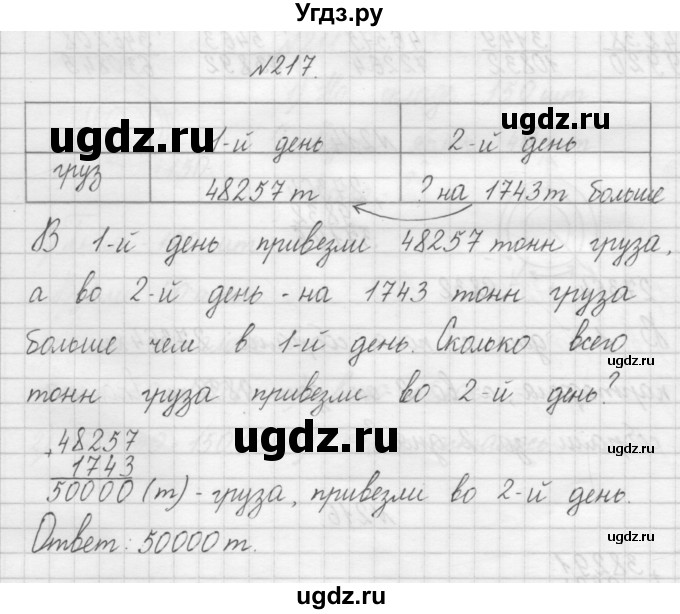 Угдз.ру
№217.
1-й день 2-й день
груз 48257 т ? на 1743 т больше
В 1-й день привезли 48257 тонн груза,
а во 2-й день - на 1743 тонн груза
больше чем в 1-й день. Сколько всего
тонн груза привезли во 2-й день?
+48257
1743
50000 (т) - груза, привезли во 2-й день.
Ответ: 50000 т.
ugdz.ru
ugdz.ru
ugdz.ru
ugdz.ru
ugdz.ru
ugdz.ru
ugdz.ru